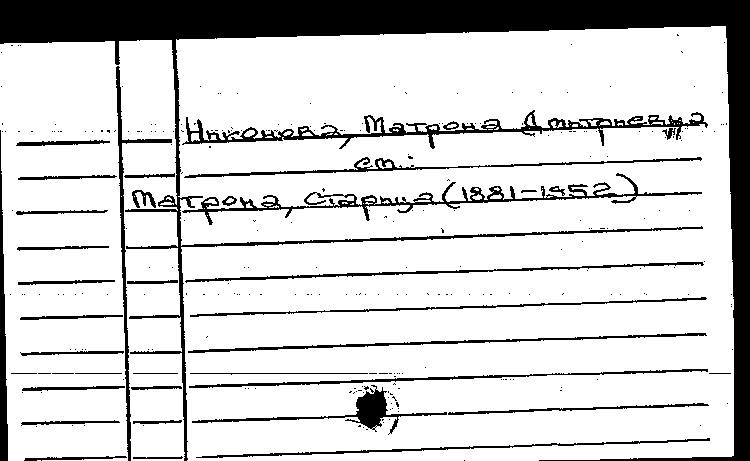 Никонова, Матрона Дмитриевна
см.:
Матрона, старица (1881-1952)